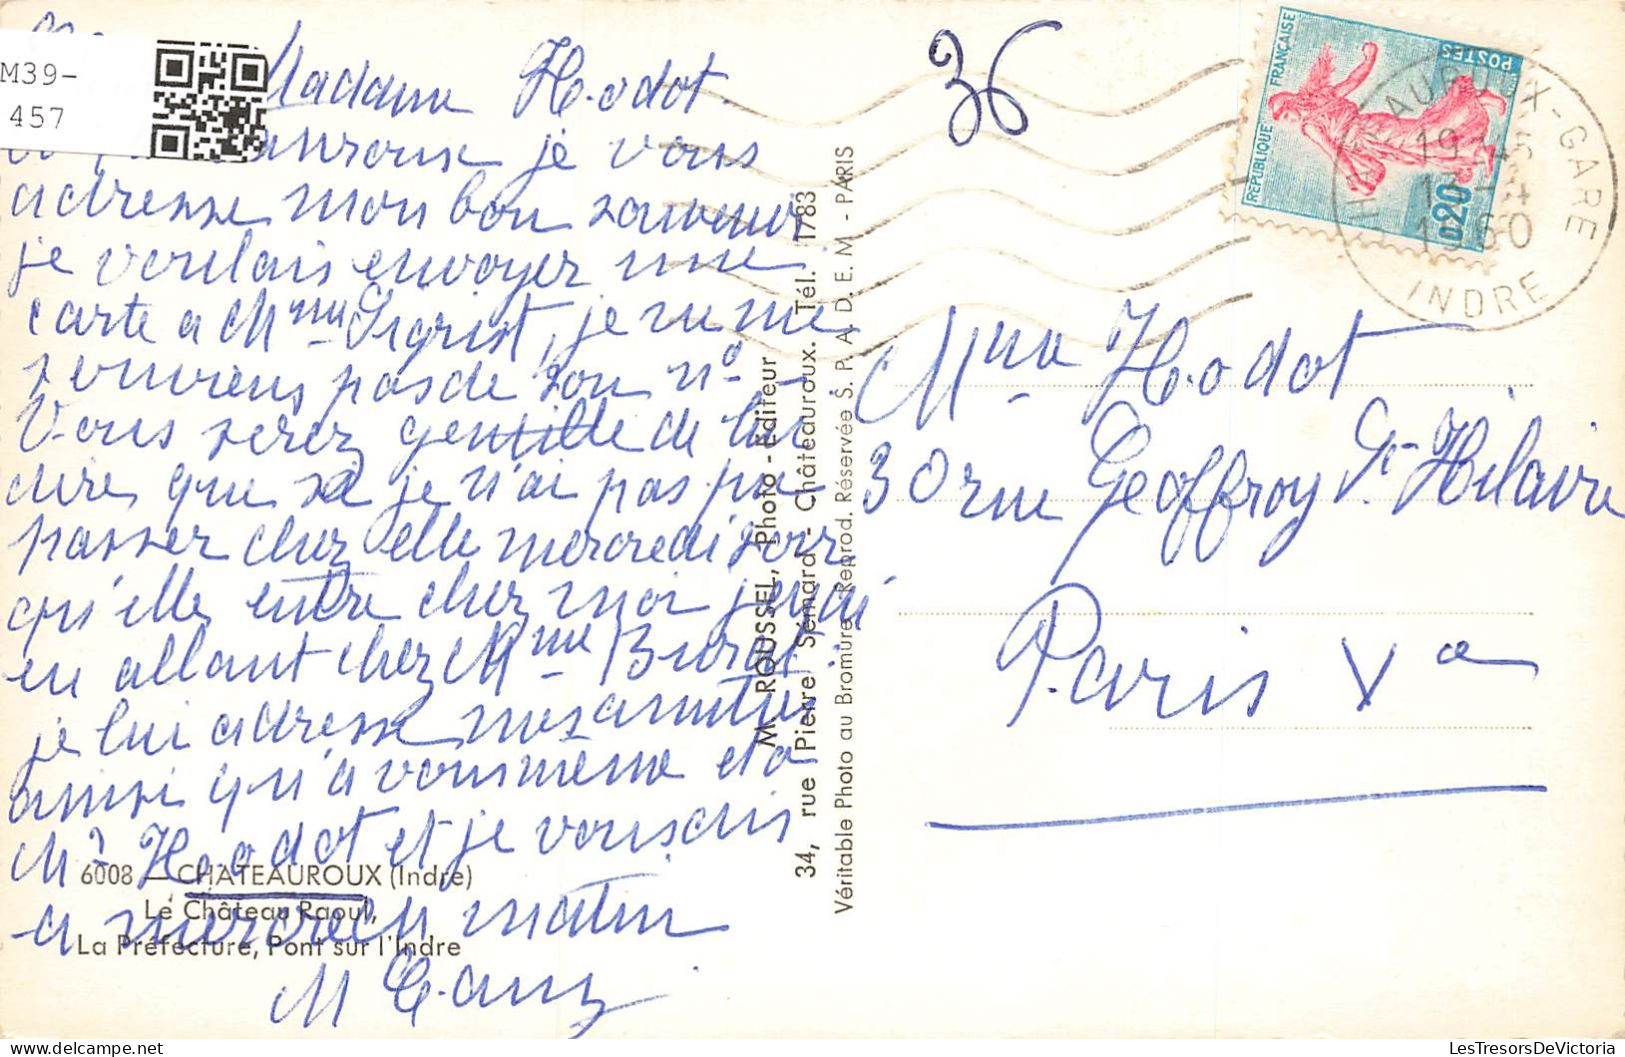 M39-
457
Madame Hodot.
je vous
adresse mon bon souvenir
je voulais envoyer une
carte a Mme Sigrist, je ne me
souviens pas de son n° -
Vous serez gentille de lui
dire que si je n'ai pas pu
passer chez elle mercredi soir
qu'elle entre chez moi
en allant chez Mme
je lui adresse mes amitiés
ainsi qu'a vous meme et a
Mr Hodot et je vous dis
a mercredi matin
M
6008 — CHATEAUROUX (Indre)
Le Château Raoul,
La Préfecture, Pont sur l'Indre
M. ROUSSEL, Photo - Editeur
34, rue Pierre Sémard - Châteauroux. Tél. 1783
Véritable Photo au Bromure Reprod. Réservée S. P. A. D. E. M - PARIS
36
REPUBLIQUE FRANÇAISE
POSTES
0,20
CHATEAUROUX-GARE
INDRE
Mme Hodot
30 rue Geoffroy St-Hilaire
Paris Ve
LesTresorsDeVictoria